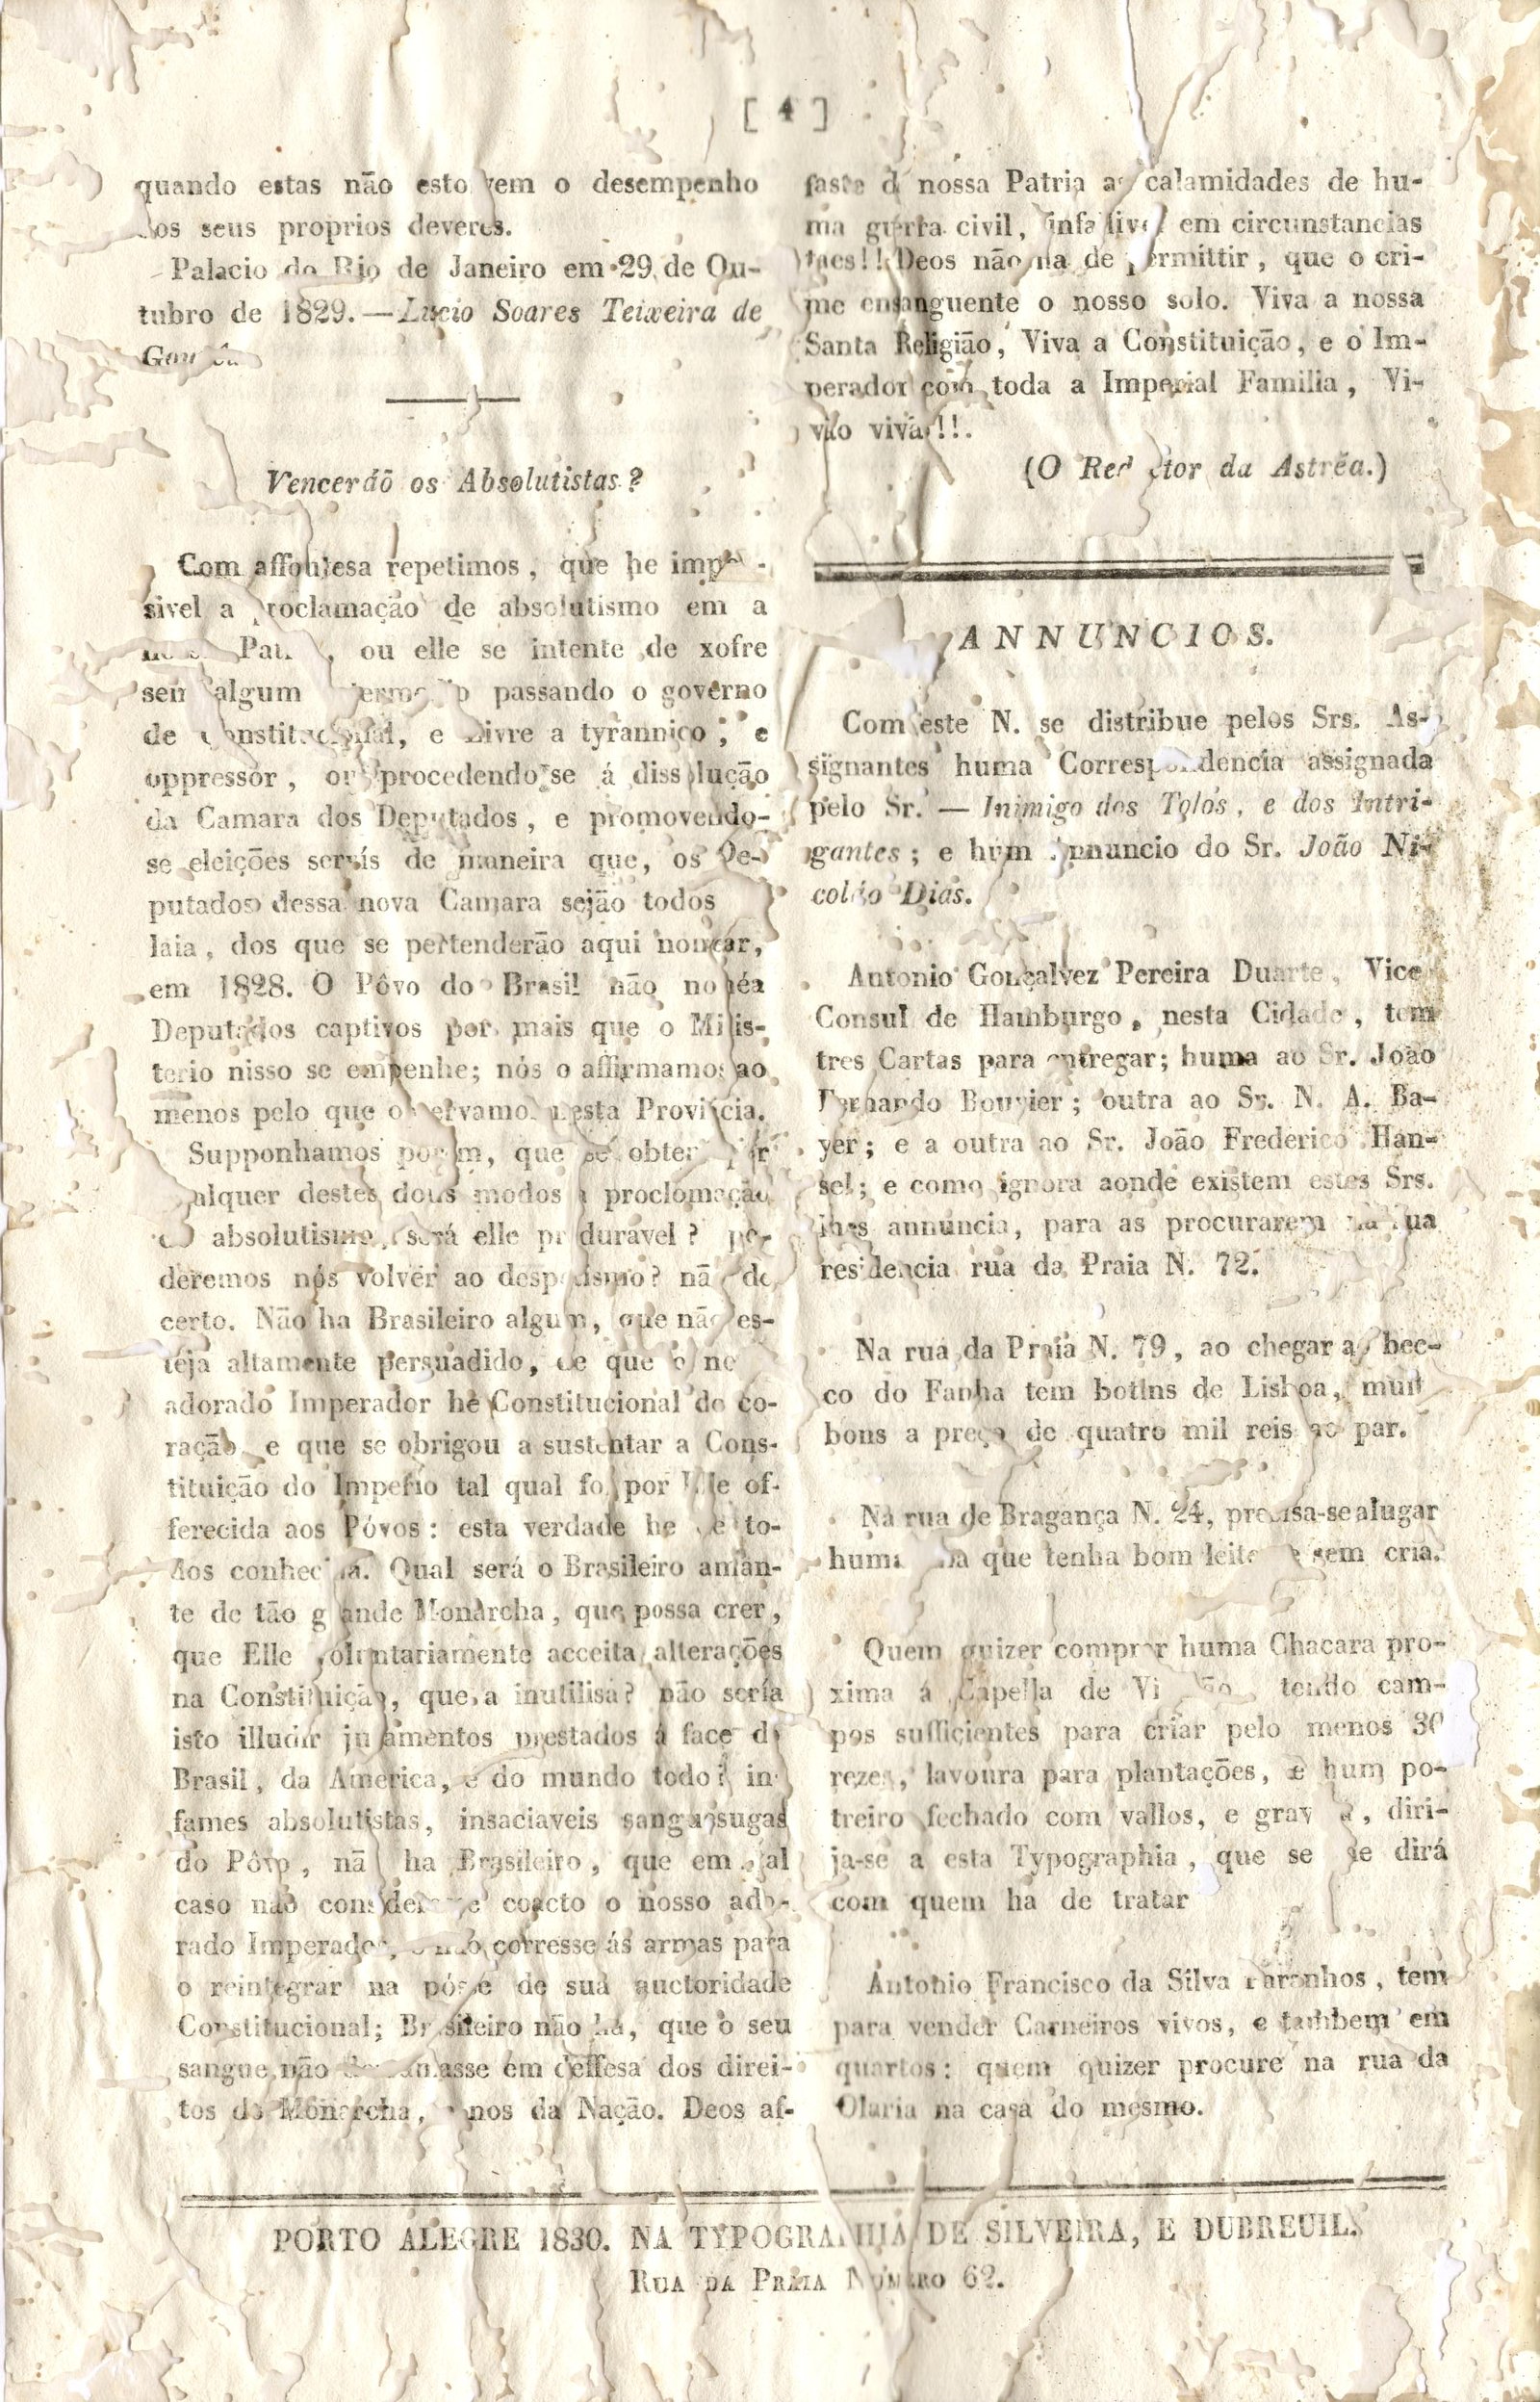 [ 4 ]
quando estas não estorvem o desempenho
dos seus proprios deveres.
Palacio do Rio de Janeiro em 29 de Ou-
tubro de 1829. — Lucio Soares Teixeira de
Gouvêa.
Vencerãõ os Absolutistas?
Com affoutesa repetimos, que he impos-
sivel a proclamação de absolutismo em a
nossa Patria, ou elle se intente de xofre
sem algum intermedio passando o governo
de Constitucional, e Livre a tyrannico, e
oppressor, ou procedendo se á dissolução
da Camara dos Deputados, e promovendo-
se eleições servís de maneira que, os De-
putados dessa nova Camara sejão todos
laia, dos que se pertenderão aqui nomear,
em 1828. O Pôvo do Brasil não nomêa
Deputados captivos por mais que o Minis-
terio nisso se empenhe; nós o affirmamos ao
menos pelo que observamos nesta Provincia.
Supponhamos porem, que se obter por
qualquer destes dous modos a proclomação
do absolutismo, será elle perduravel? po-
deremos nós volver ao despotismo? não de
certo. Não ha Brasileiro algum, que não es-
teja altamente persuadido, de que o
adorado Imperador he Constitucional de co-
ração e que se obrigou a sustentar a Cons-
tituição do Imperio tal qual foi por Elle of-
ferecida aos Póvos: esta verdade he de to-
dos conhecida. Qual será o Brasileiro aman-
te de tão grande Monarcha, que possa crer,
que Elle voluntariamente acceita alterações
na Constituição, que a inutilisa? não sería
isto illudir juramentos prestados á face do
Brasil, da America, e do mundo todo? in-
fames absolutistas, insaciaveis sanguesugas
do Pôvo, não ha Brasileiro, que em tal
caso não considerasse coacto o nosso ado-
rado Imperador, e não corresse ás armas para
o reintegrar na pósse de sua auctoridade
Constitucional; Brasileiro não ha, que o seu
sangue não derramasse em deffesa dos direi-
tos do Monarcha, e nos da Nação. Deos af-
faste da nossa Patria as calamidades de hu-
ma guerra civil, infallivel em circunstancias
taes!! Deos não ha de permittir, que o cri-
me ensanguente o nosso solo. Viva a nossa
Santa Religião, Viva a Constituição, e o Im-
perador com toda a Imperial Familia, Vi-
vão vivas!!.
(O Redactor da Astréa.)
ANNUNCIOS.
Com este N. se distribue pelos Srs. As-
signantes huma Correspondencia assignada
pelo Sr. — Inimigo dos Tolos, e dos Intri-
gantes; e hum Annuncio do Sr. João Ni-
coláo Dias.
Antonio Gonçalvez Pereira Duarte, Vice
Consul de Hamburgo, nesta Cidade, tem
tres Cartas para entregar; huma ao Sr. João
Fernando Bouvier; outra ao Sr. N. A. Ba-
yer; e a outra ao Sr. João Frederico Han-
sel; e como ignora aonde existem estes Srs.
lhes annuncia, para as procurarem na sua
residencia rua da Praia N. 72.
Na rua da Praia N. 79, ao chegar ao bec-
co do Fanha tem botins de Lisboa, muit
bons a preço de quatro mil reis ao par.
Na rua de Bragança N. 24, precisa-se alugar
huma ama que tenha bom leite e sem cria.
Quem quizer comprar huma Chacara pro-
xima á Capella de Viamão, tendo cam-
pos sufficientes para criar pelo menos 30
rezes, lavoura para plantações, e hum po-
treiro fechado com vallos, e gravatá, diri-
ja-se a esta Typographia, que se lhe dirá
com quem ha de tratar
Antonio Francisco da Silva Paranhos, tem
para vender Carneiros vivos, e tambem em
quartos: quem quizer procure na rua da
Olaria na casa do mesmo.
PORTO ALEGRE 1830. NA TYPOGRAPHIA DE SILVEIRA, E DUBREUIL.
RUA DA PRAIA NUMERO 62.